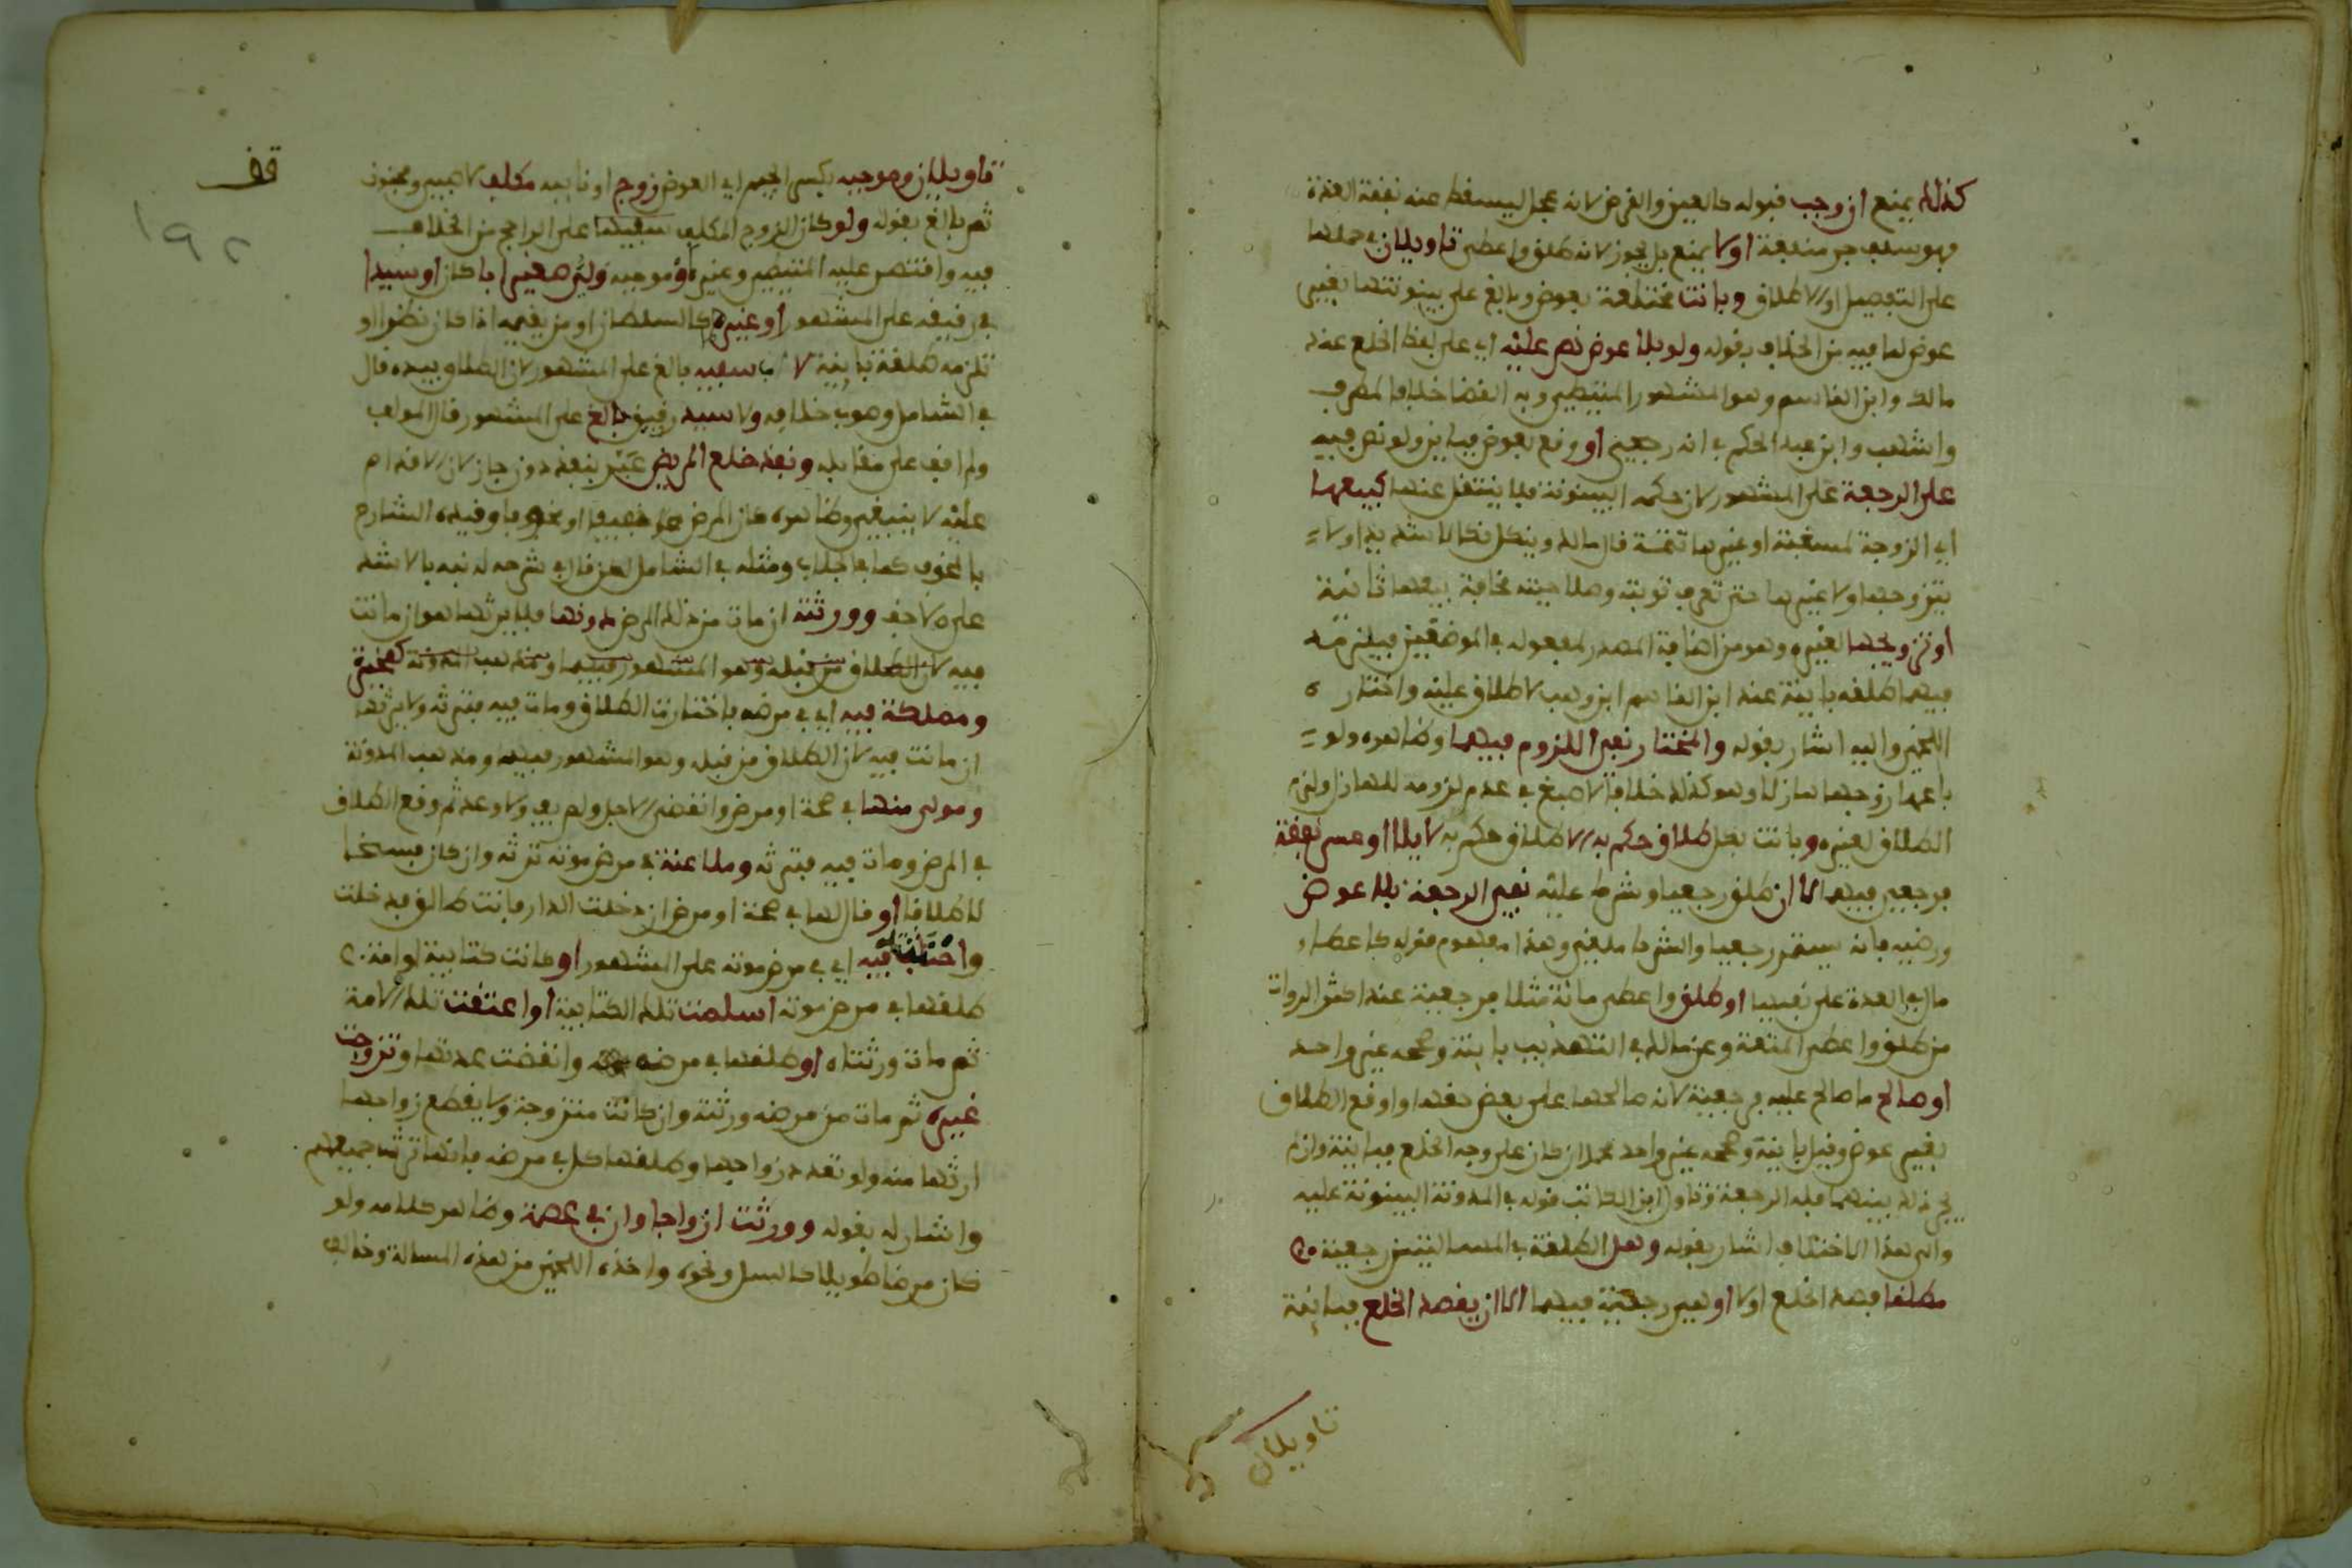 كذلك يمنع ان وجب قبوله كالعين والقرض لانه عجل ليسقط عنه نفقة العدة
فهو سلف جر منفعة اولا يمنع بل يجوز لانه طلق واعطى تاويلان في حملها
على التفصيل او الاطلاق وبانت مختلعة بعوض وبالغ على بينونتها بغير
عوض لما فيه من الخلاف بقوله ولو بلا عوض نص عليه اي على لفظ الخلع عند
مالك وابن القاسم وهو المشهور المنتصر وبه القضا خلافا لمطرف
واشهب وابن عبد الحكم في انه رجعي او وقع بعوض فباين ولو نص فيه
على الرجعة على المشهور لان حكمه البينونة فلا ينتقل عنها كبيعها
اي الزوجة لمسغبة او غيرها تتمة قال مالك وينكل نكالا شديدا ولا
يتزوجها ولا غيرها حتى تعرف توبته وصلاحيته مخافة بيعها ثانية
او تزويجها لغيره وهو من اضافة المصدر لمفعوله في الموضعين فيلزمه
فيهما طلقة باينة عند ابن القاسم ابن وهب لا طلاق عليه واختاره
اللخمي واليه اشار بقوله والمختار نفي اللزوم فيهما وظاهره ولو
باعها زوجها هازلا وهو كذلك خلافا لاصبغ في عدم لزومه للهازل ولزم
الطلاق لغيره وبانت بكل طلاق حكم به الا طلاق حكم به لايلا او عسر نفقة
فرجعي فيهما لا ان طلق رجعيا وشرط عليه نفي الرجعة بلا عوض
ورضيه فانه يستمر رجعيا والشرط ملغى وهذا مفهوم قوله كاعطاء
مال في العدة على نفيها او طلق واعطى مائة مثلا فرجعية عند اكثر الروات
من طلق واعطى المتعة وعن مالك في التهذيب باينة وصححه غير واحد
او صالح ما صالح عليه فرجعية لانه صالحها على بعض حقها او اوقع الطلاق
بغير عوض وقيل باينة وصححه غير واحد محمد ان كان على وجه الخلع فباينة وان لم
يجر ذلك بينهما فله الرجعة وتاول ابن الكاتب قوله في المدونة البينونة عليه
والى هذا الاختلاف اشار بقوله وهل الطلقة في المسالتين رجعية
مطلقا قصد الخلع اولا او هي رجعية فيهما الا ان يقصد الخلع فباينة
تاويلان
قف
١٩٢
تاويلان وموجبه بكسر الجيم اي العوض زوج او نايبه مكلف لا صبي ومجنون
ثم بالغ بقوله ولو كان الزوج المكلف سفيها على الراجح من الخلاف
فيه واقتصر عليه المتيطي وغيره او موجبه ولي صغير ابا كان او سيدا
في رقيقه على المشهور او غيره كالسلطان او من يقيمه اذا كان نظرا و
تلزمه طلقة باينة لا اب سفيه بالغ على المشهور لان الطلاق بيده قال
في الشامل وصوب خلافه ولا سيد رقيق بالغ على المشهور قال المولف
ولم اقف على مقابله ونفذ خلع المريض عبر بنفذ دون جاز لان الاقدام
عليه لا ينبغي وظاهره كان المرض خفيفا او مخوفا وقيده الشارح
بالمخوف كما في الجلاب ومثله في الشامل لكن قال في شرحه له نبه بالاشد
على الاخف وورثته ان مات من ذلك المرض دونها فلا يرثها هو ان ماتت
فيه لان الطلاق من قبله وهو المشهور فيهما ومذهب المدونة كمخيرة
ومملكة فيه اي في مرضه باختارت الطلاق ومات فيه فترثه ولا يرثها
ان ماتت فيه لان الطلاق من قبله وهو المشهور فيهما ومذهب المدونة
ومولى منها في صحة او مرض وانقضى الاجل ولم يف ولا وعد ثم وقع الطلاق
في المرض ومات فيه فترثه وملاعنة في مرض موته ترثه وان كان فسخا
لا طلاقا او قال لها في صحة او مرض ان دخلت الدار فانت طالق فدخلت
واحنثته فيه اي في مرض موته على المشهور او كانت كتابية او امة
طلقها في مرض موته اسلمت تلك الكتابية او اعتقت تلك الامة
ثم مات ورثتاه او طلقها في مرضه وانقضت عدتها وتزوجت
غيره ثم مات من مرضه ورثته وان كانت متزوجة ولا يقطع زواجها
ارثها منه ولو تعدد زواجها وطلقها كل في مرضه فانها ترث جميعهم
واشار له بقوله وورثت ازواجا وان في عصمة وظاهر كلامه ولو
كان مرضا طويلا كالسل ونحوه واخذه اللخمي من هذه المسالة وخالف